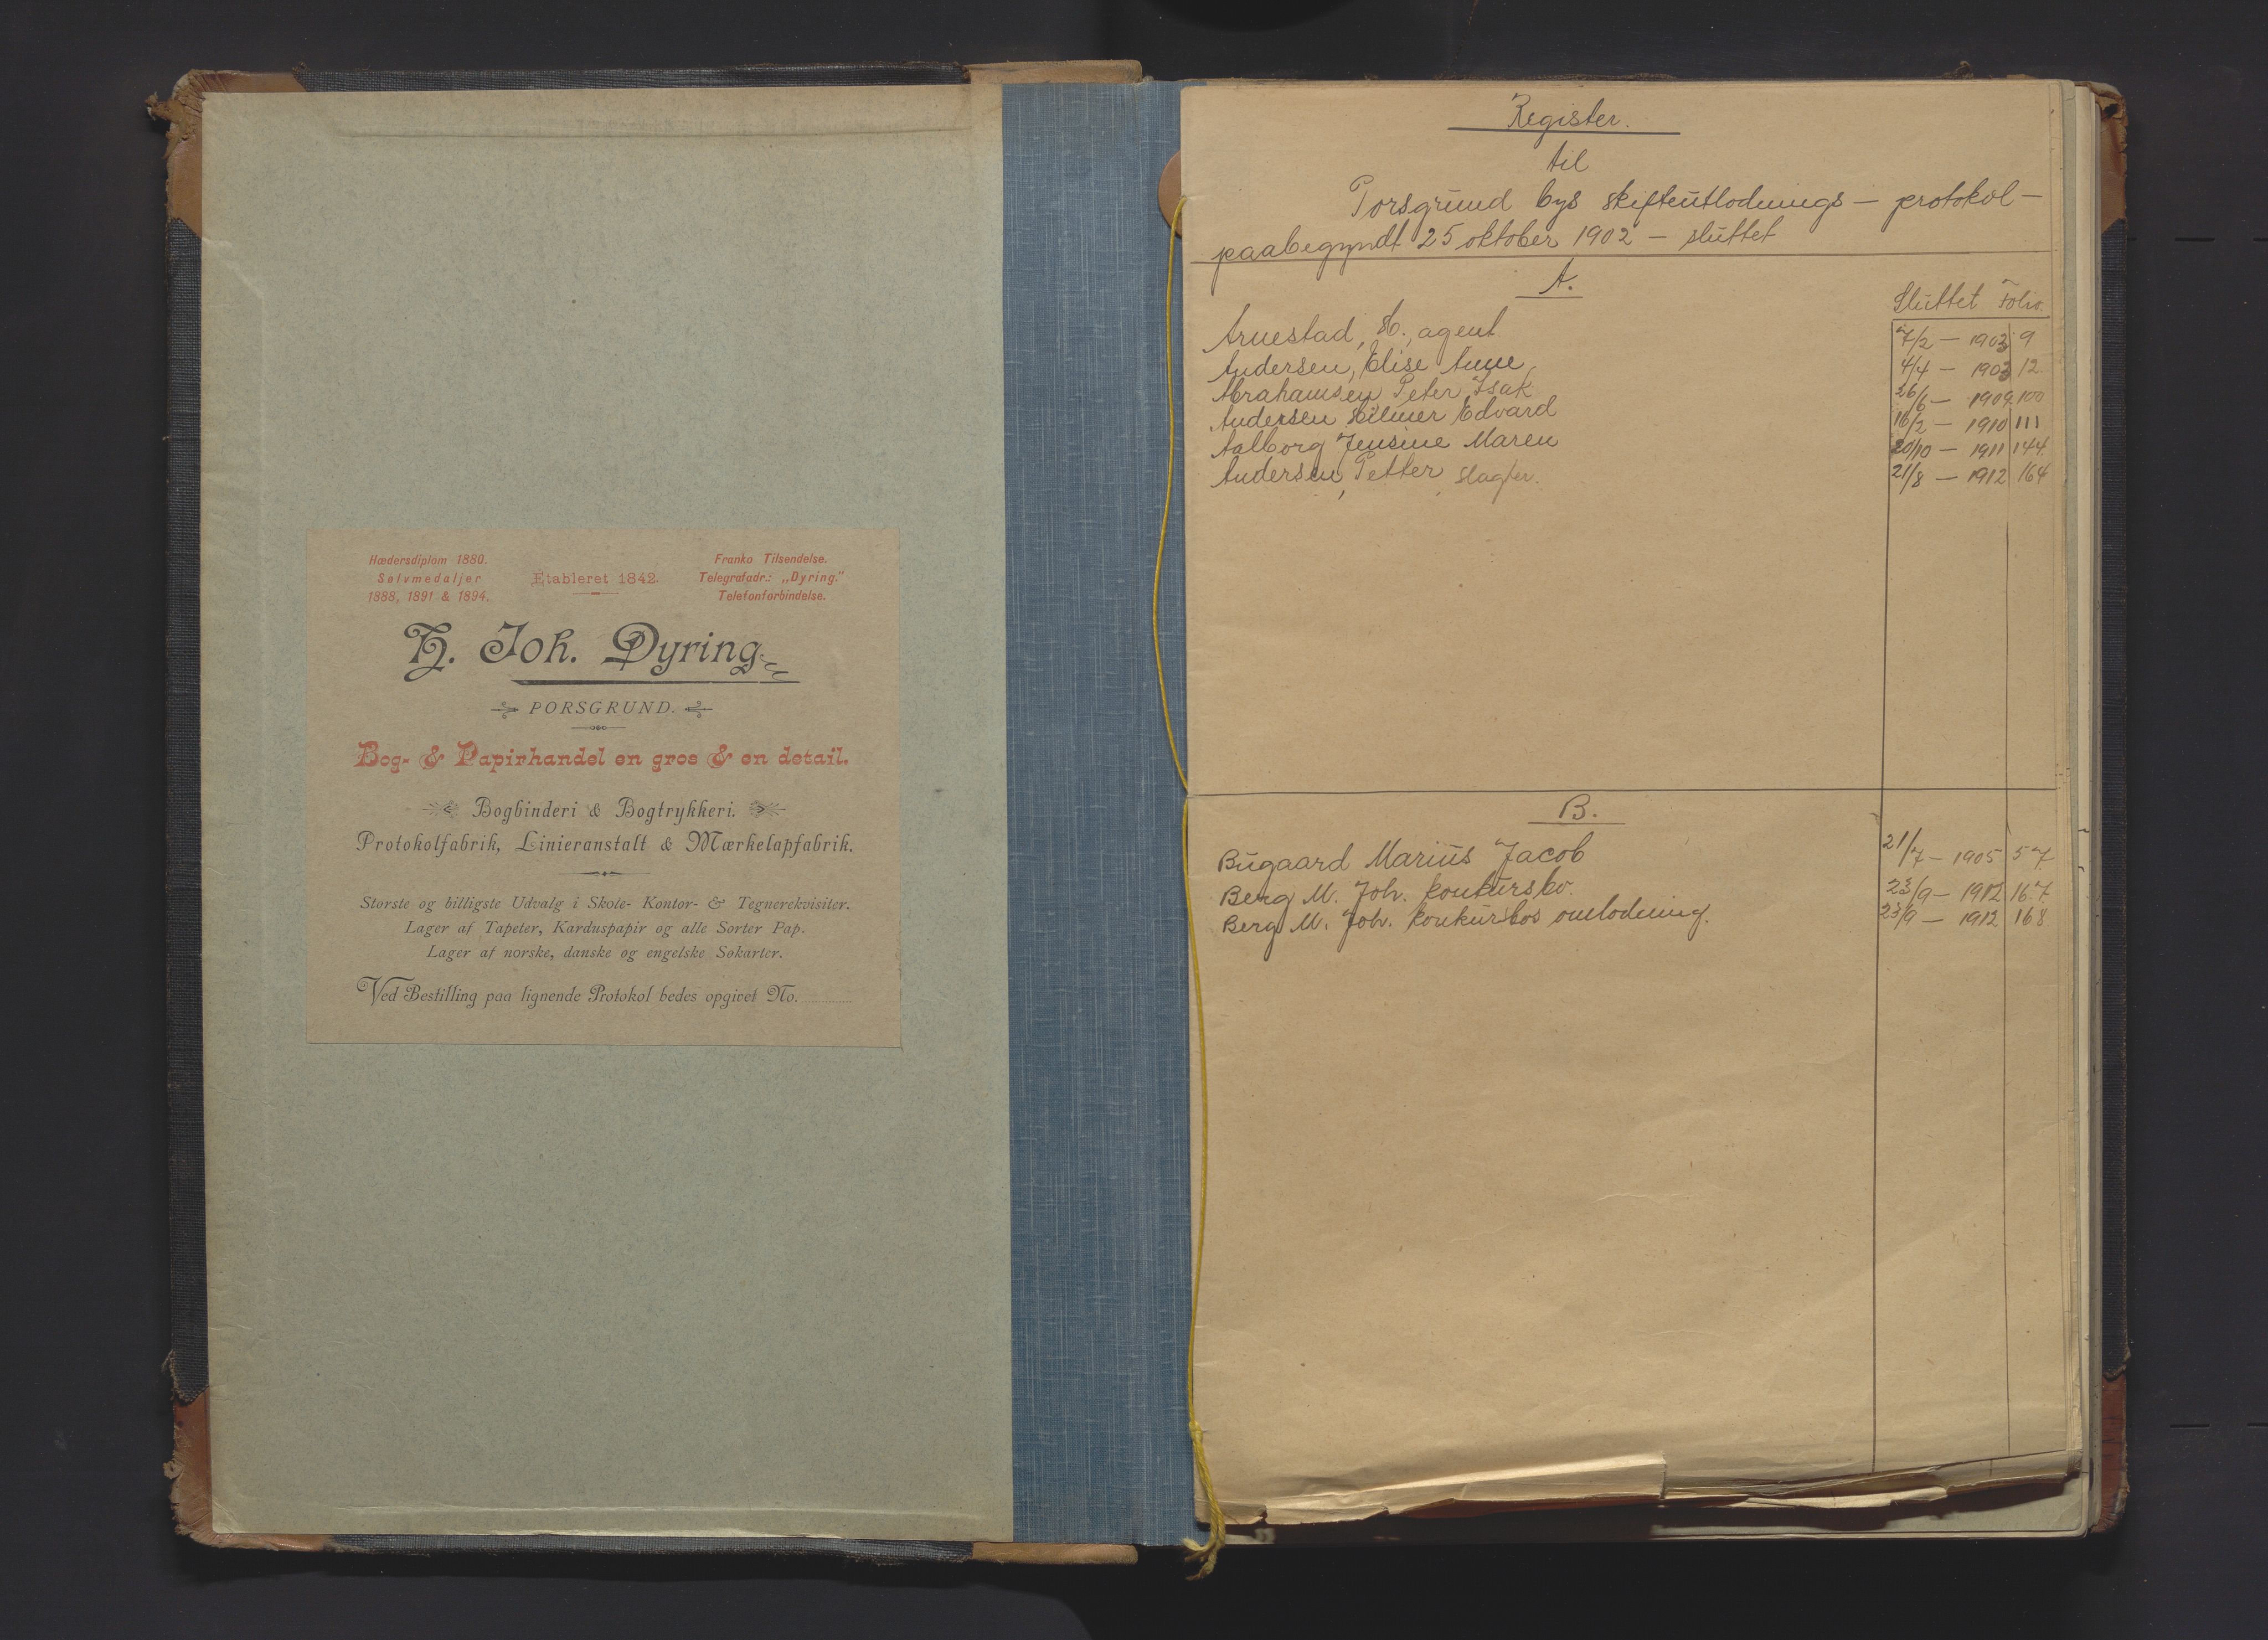 Hædersdiplom 1880.
Sølvmedaljer
1888, 1891 & 1894.
Etableret 1842.
Franko Tilsendelse.
Telegrafadr.: „Dyring."
Telefonforbindelse.
H. Joh. Dyring
PORSGRUND.
Bog- & Papirhandel en gros & en detail.
Bogbinderi & Bogtrykkeri.
Protokolfabrik, Linieranstalt & Mærkelapfabrik.
Største og billigste Udvalg i Skole- Kontor- & Tegnerekvisiter.
Lager af Tapeter, Karduspapir og alle Sorter Pap.
Lager af norske, danske og engelske Søkarter.
Ved Bestilling paa lignende Protokol bedes opgivet No.
Register.
til
Porsgrund bys skifteutlodnings - protokol -
paabegyndt 25 oktober 1902 - sluttet
A.
Sluttet Folio.
Arnestad, H., agent 7/2 - 1903 9
Andersen, Elise Anne 4/4 - 1903 12
Abrahamsen Peter Isak 26/6 - 1909 100
Andersen Hilmer Edvard 16/2 - 1910 111
Aalborg Jensine Maren 20/10 - 1911 144
Andersen, Petter, slagter. 21/8 - 1912 164
B.
Bugaard Marius Jacob 21/7 - 1905 57
Berg M. Joh. konkursbo. 23/9 - 1912 167
Berg M. Joh. konkursbos omlodning. 23/9 - 1912 168